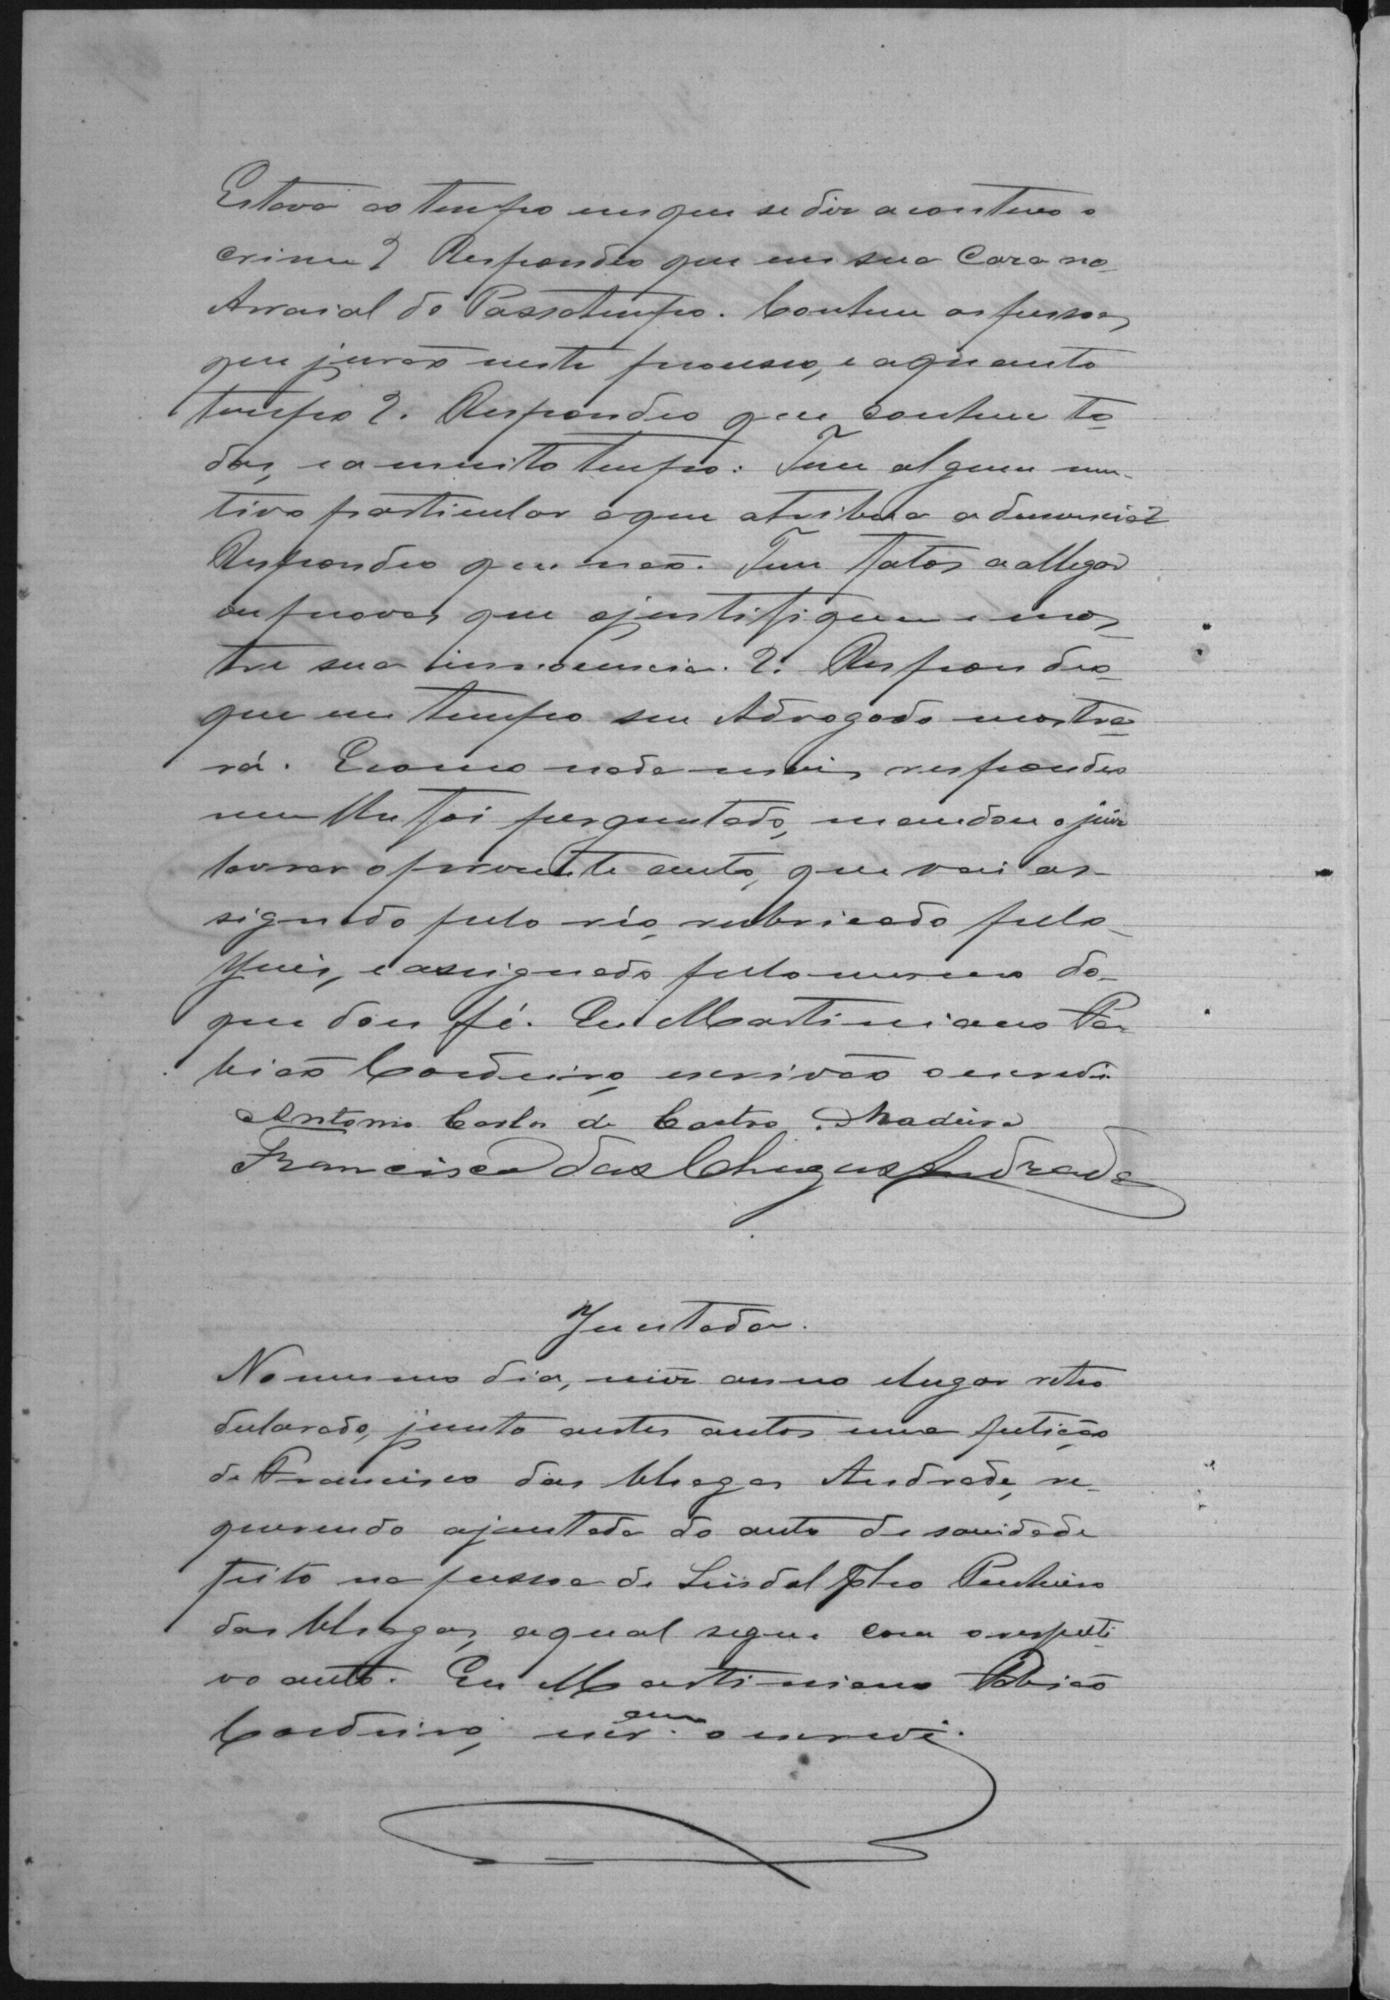 Estava ao tempo em que se diz aconteceo o
crime? Respondeo que em sua Caza no
Arraial do Passatempo. Conhece as pessoas
que jurão neste processo, e a quanto
tempo?. Respondeo que conhece to-
das, e a muito tempo. Tem algum mo-
tivo particular a que atribua a denuncia?
Respondeo que não. Tem fatos a allegar
ou provas que o justifiquem e mos-
tre sua innocencia?. Respondeo
que em tempo seu Advogado mostra-
rá. E como nada mais respondeo
nem lhe foi perguntado, mandou o juiz
lavrar o presente auto, que vai as-
signado pelo réo, rubricado pelo
Juis, e assignado pelo mesmo do
que dou fé. Eu Martiniano
Cordeiro, escrivão o escrevi
Antonio Carlos de Castro Madeira
Francisco das Chagas Andrade
Juntada.
No mesmo dia, mez anno e lugar retro
declarado, junto a estes autos uma petição
de Francisco das Chagas Andrade, re-
querendo a juntada do auto de sanidade
feito na pessoa de Lindolpho Pinheiro
das Chagas, a qual segue com o respecti-
vo auto. Eu Martiniano
Cordeiro, escr.am o escrevi.